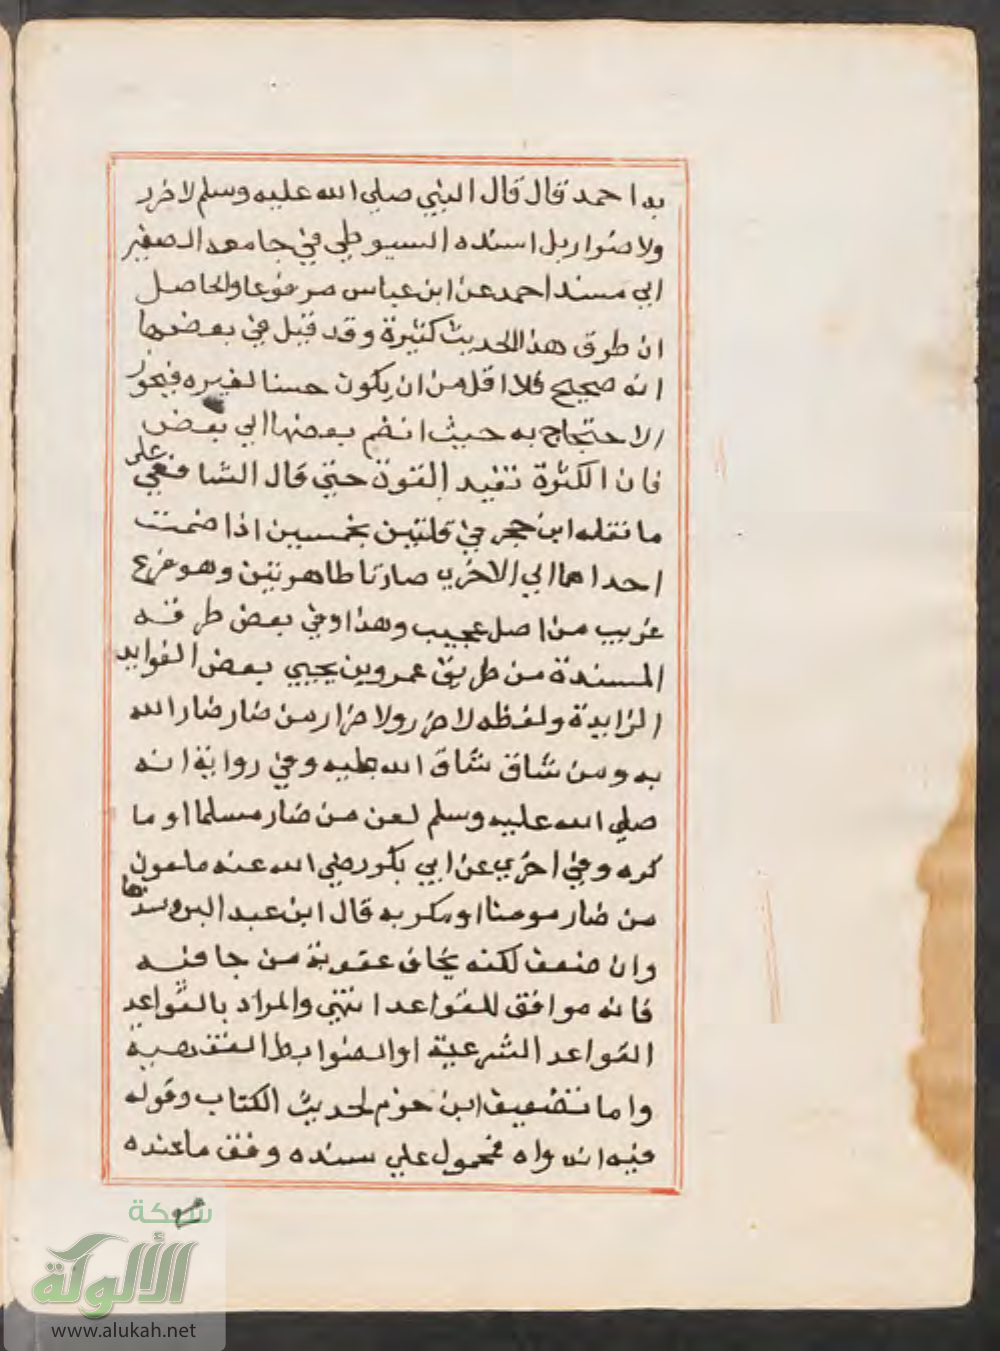 به احمد قال قال النبي صلى الله عليه وسلم لا ضرر
ولا ضرار بل اسنده السيوطي في جامعه الصغير
الي مسند احمد عن ابن عباس مرفوعا والحاصل
ان طرق هذا الحديث كثيرة وقد قيل في بعضها
انه صحيح فلا اقل من ان يكون حسنا لغيره فيجوز
الاحتجاج به حيث انضم بعضها الي بعض
فان الكثرة تفيد القوة حتي قال الشافعي علي
ما نقله ابن حجر في قلتين بخمسين اذا ضمت
احداهما الي الاخري صارتا طاهرتين وهو فرع
غريب من اصل عجيب وهذا وفي بعض طرقه
المسندة من طريق عمرو بن يحيي بعض الفوايد
الزايدة ولفظه لا ضرر ولا ضرار من ضار ضار الله
به ومن شاق شاق الله عليه وفي رواية انه
صلي الله عليه وسلم لعن من ضار مسلما او ما
كره وفي اخري عن ابي بكر رضي الله عنه ملعون
من ضار مومنا او مكر به قال ابن عبد البر وسندها
وان ضعف لكنه يخاف عقوبة من جا فيه
فانه موافق للقواعد انتهي والمراد بالقواعد
القواعد الشرعية او الضوابط الفقهية
واما تضعيف ابن حزم لحديث الكتاب وقوله
فيه انه واه فمحمول علي سنده وفق ما عنده
شبكة
الألوكة
www.alukah.net